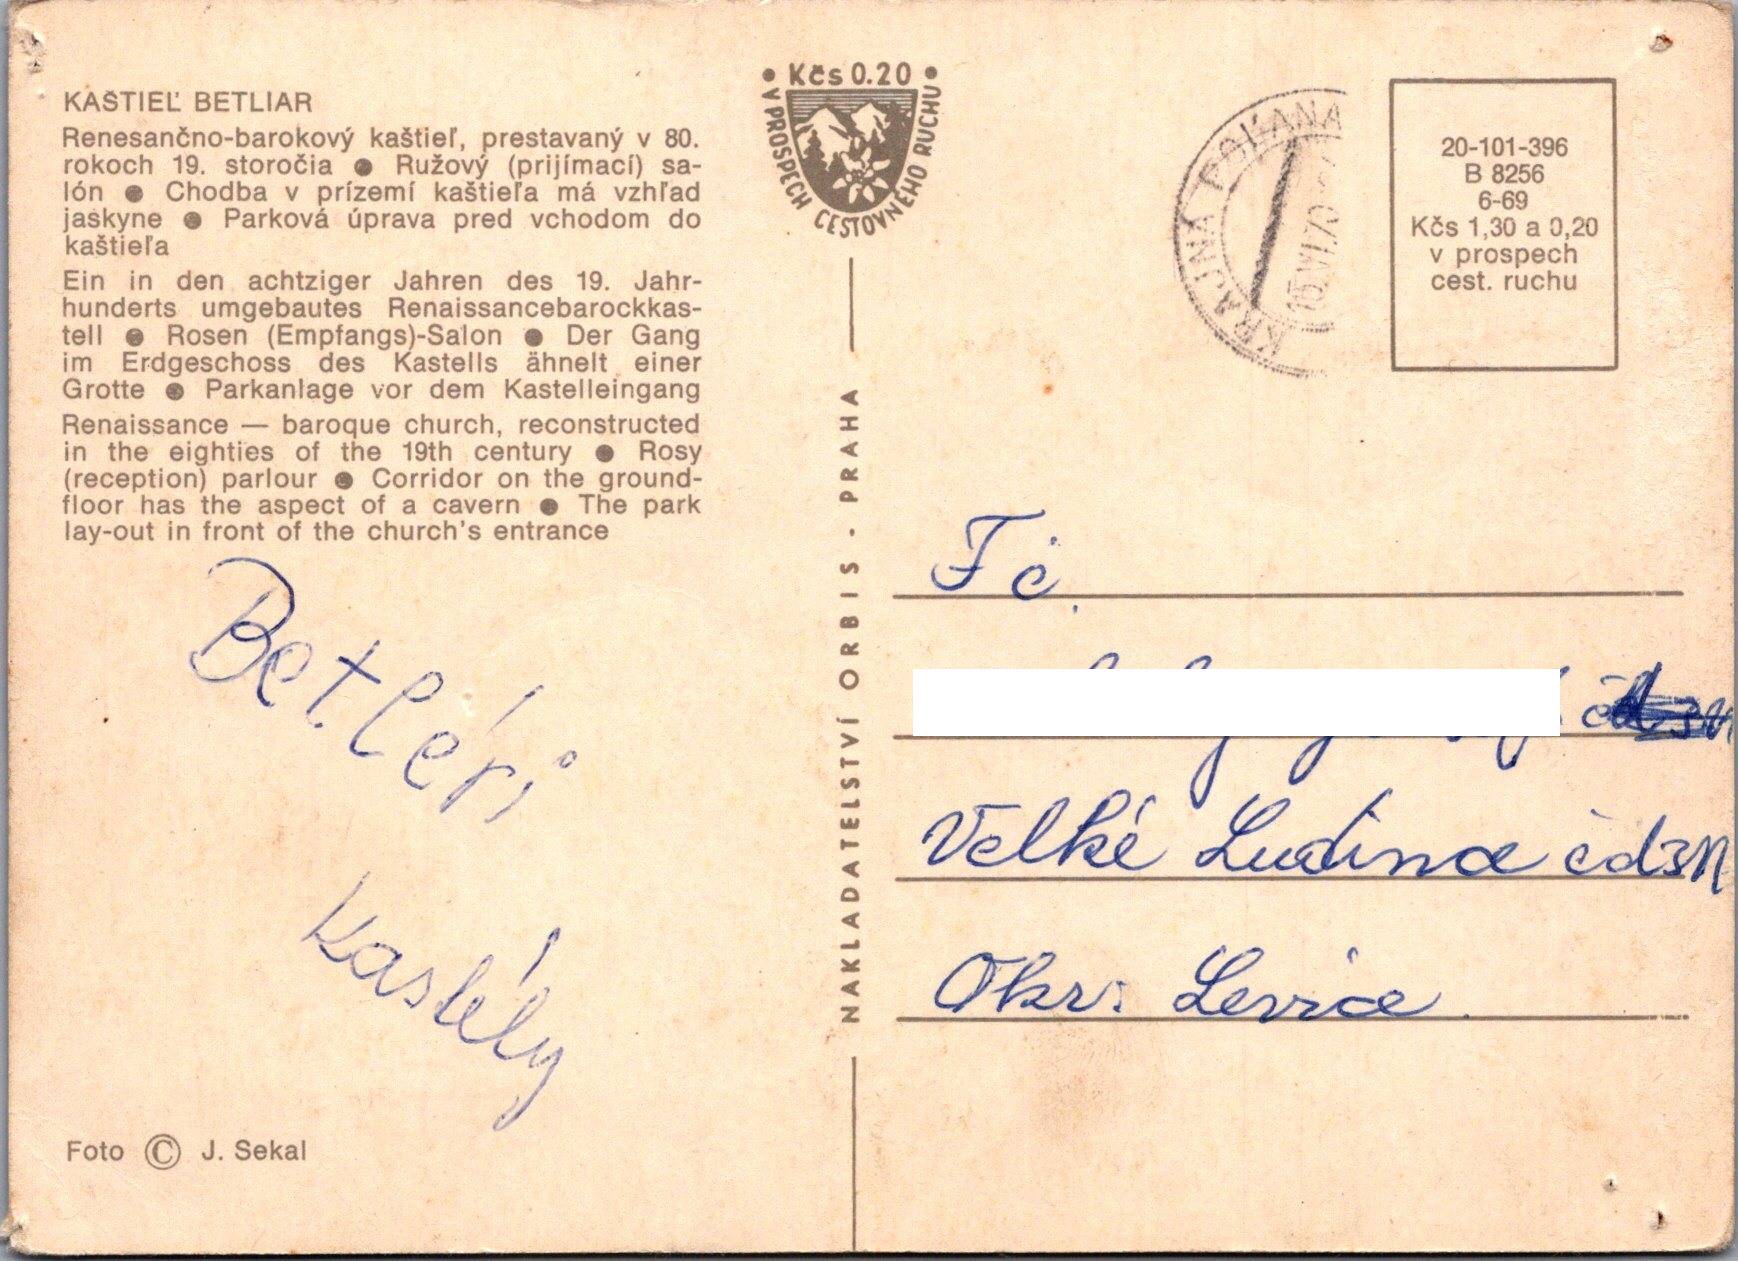 KAŠTIEĽ BETLIAR
Renesančno-barokový kaštieľ, prestavaný v 80.
rokoch 19. storočia ● Ružový (prijímací) sa-
lón ● Chodba v prízemí kaštieľa má vzhľad
jaskyne ● Parková úprava pred vchodom do
kaštieľa
Ein in den achtziger Jahren des 19. Jahr-
hunderts umgebautes Renaissancebarockkas-
tell ● Rosen (Empfangs)-Salon ● Der Gang
im Erdgeschoss des Kastells ähnelt einer
Grotte ● Parkanlage vor dem Kastelleingang
Renaissance — baroque church, reconstructed
in the eighties of the 19th century ● Rosy
(reception) parlour ● Corridor on the ground-
floor has the aspect of a cavern ● The park
lay-out in front of the church's entrance
Betléri
kastély
Foto © J. Sekal
• Kčs 0.20 •
V PROSPECH CESTOVNÉHO RUCHU
NAKLADATELSTVÍ ORBIS - PRAHA
KRAJNÁ POĽANA
15.VI.70
20-101-396
B 8256
6-69
Kčs 1,30 a 0,20
v prospech
cest. ruchu
Velké Ludina
Okr. Levice